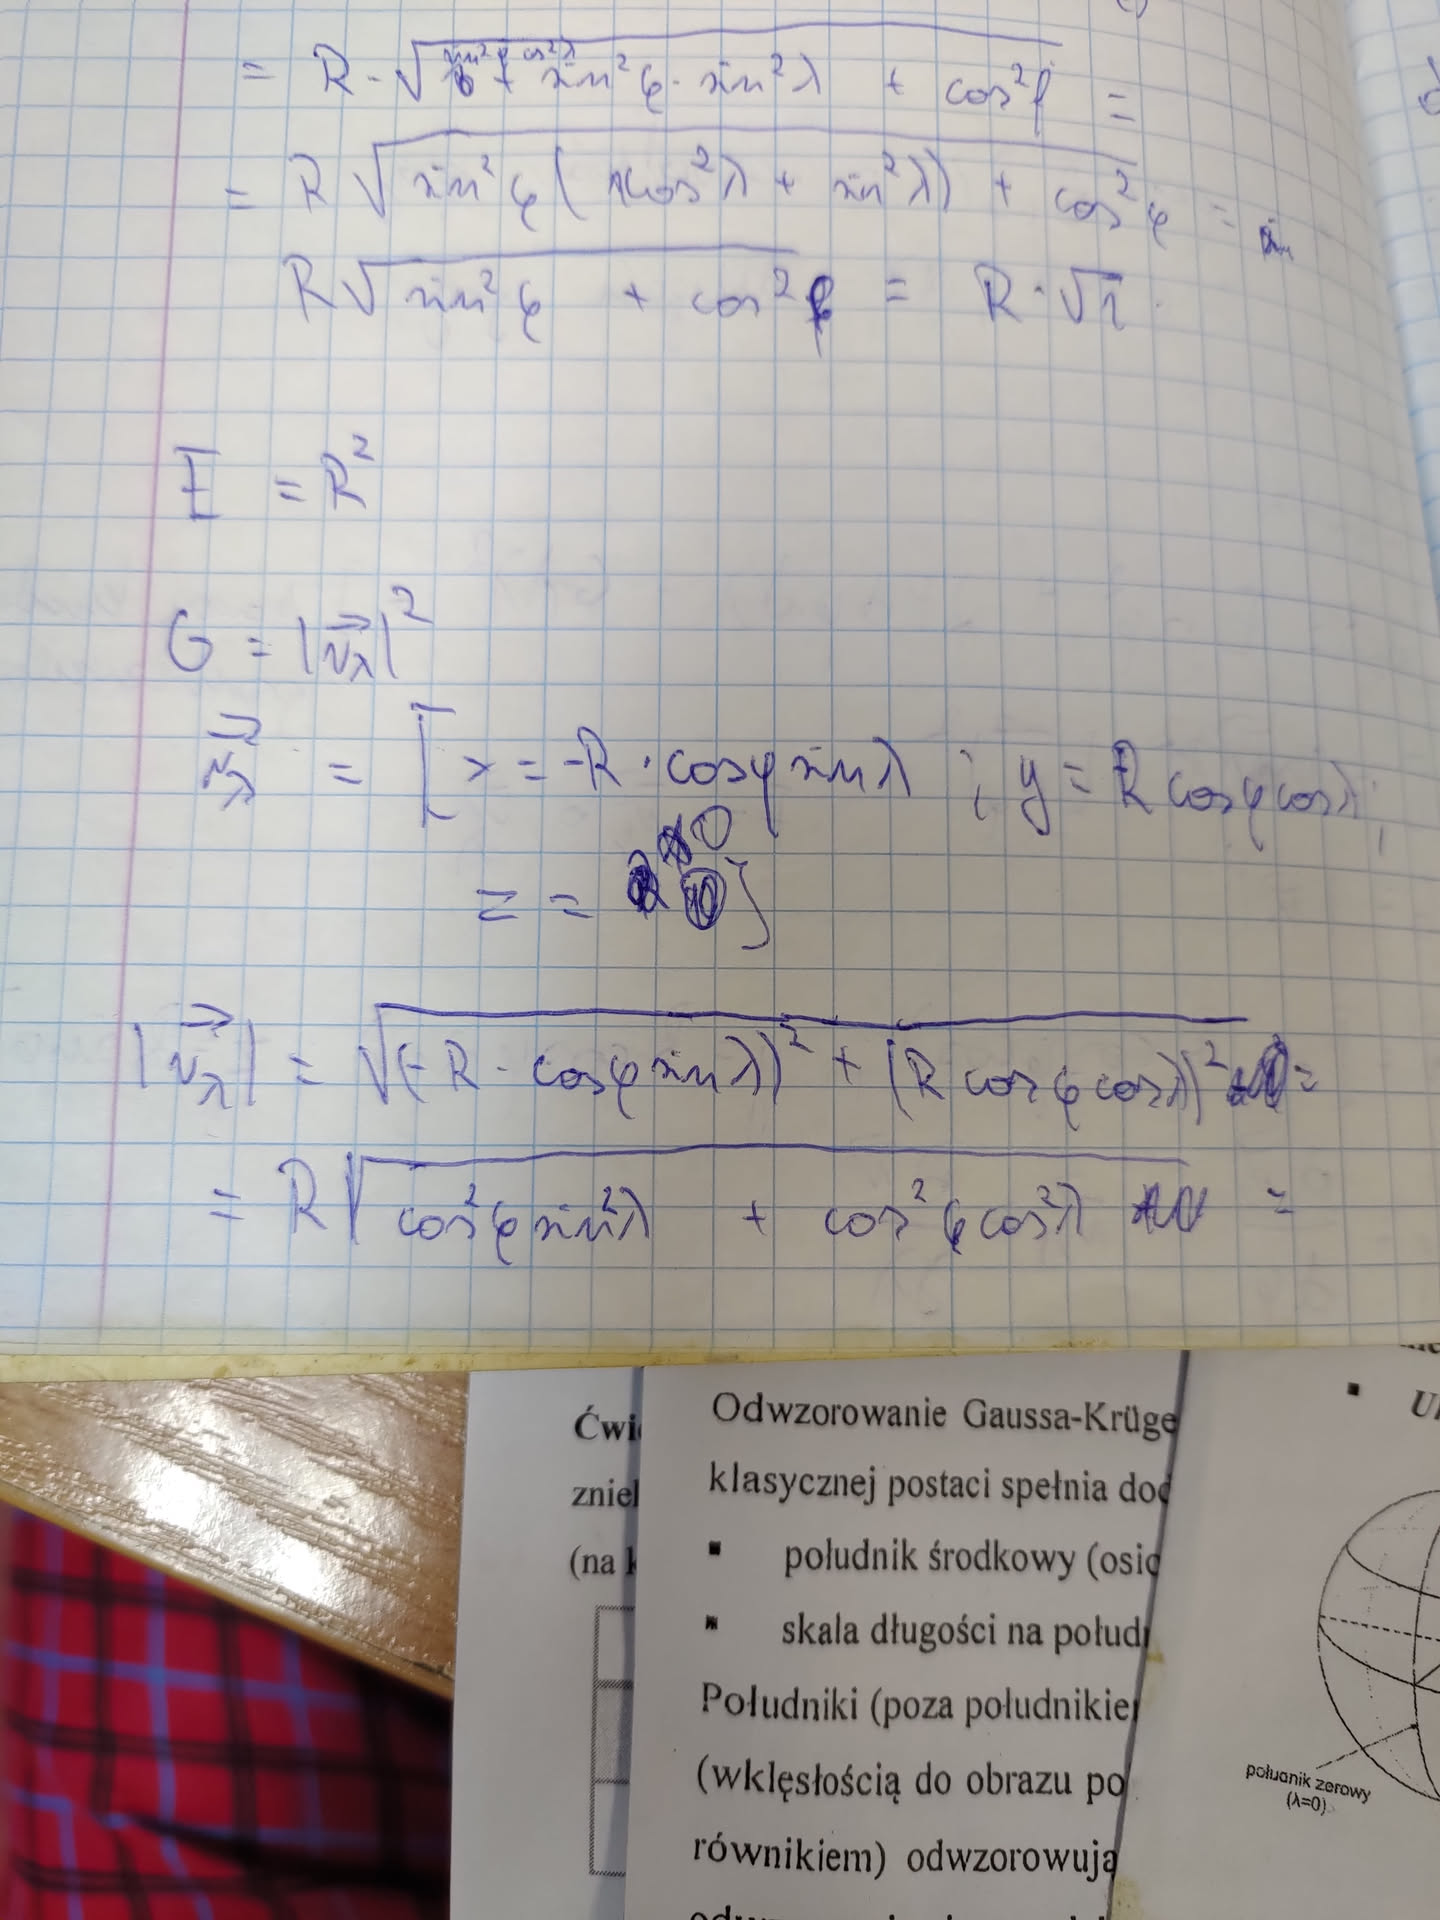 = R · √(sin²φ cos²λ + sin²φ · sin²λ + cos²φ) =
= R √(sin²φ (cos²λ + sin²λ) + cos²φ) =
R √(sin²φ + cos²φ) = R · √1
E = R²
G = |v⃗λ|²
v⃗λ = [x = -R · cosφ sinλ ; y = R cosφ cosλ ;
z = 0]
|v⃗λ| = √((-R · cosφ sinλ)² + (R cosφ cosλ)²) =
= R √(cos²φ sin²λ + cos²φ cos²λ) =
Odwzorowanie Gaussa-Krüge
klasycznej postaci spełnia
▪ południk środkowy
▪ skala długości na
Południki (poza
(wklęsłością do obrazu
równikiem) odwzorowują
Ćwi
(na
południk zerowy
(λ=0)